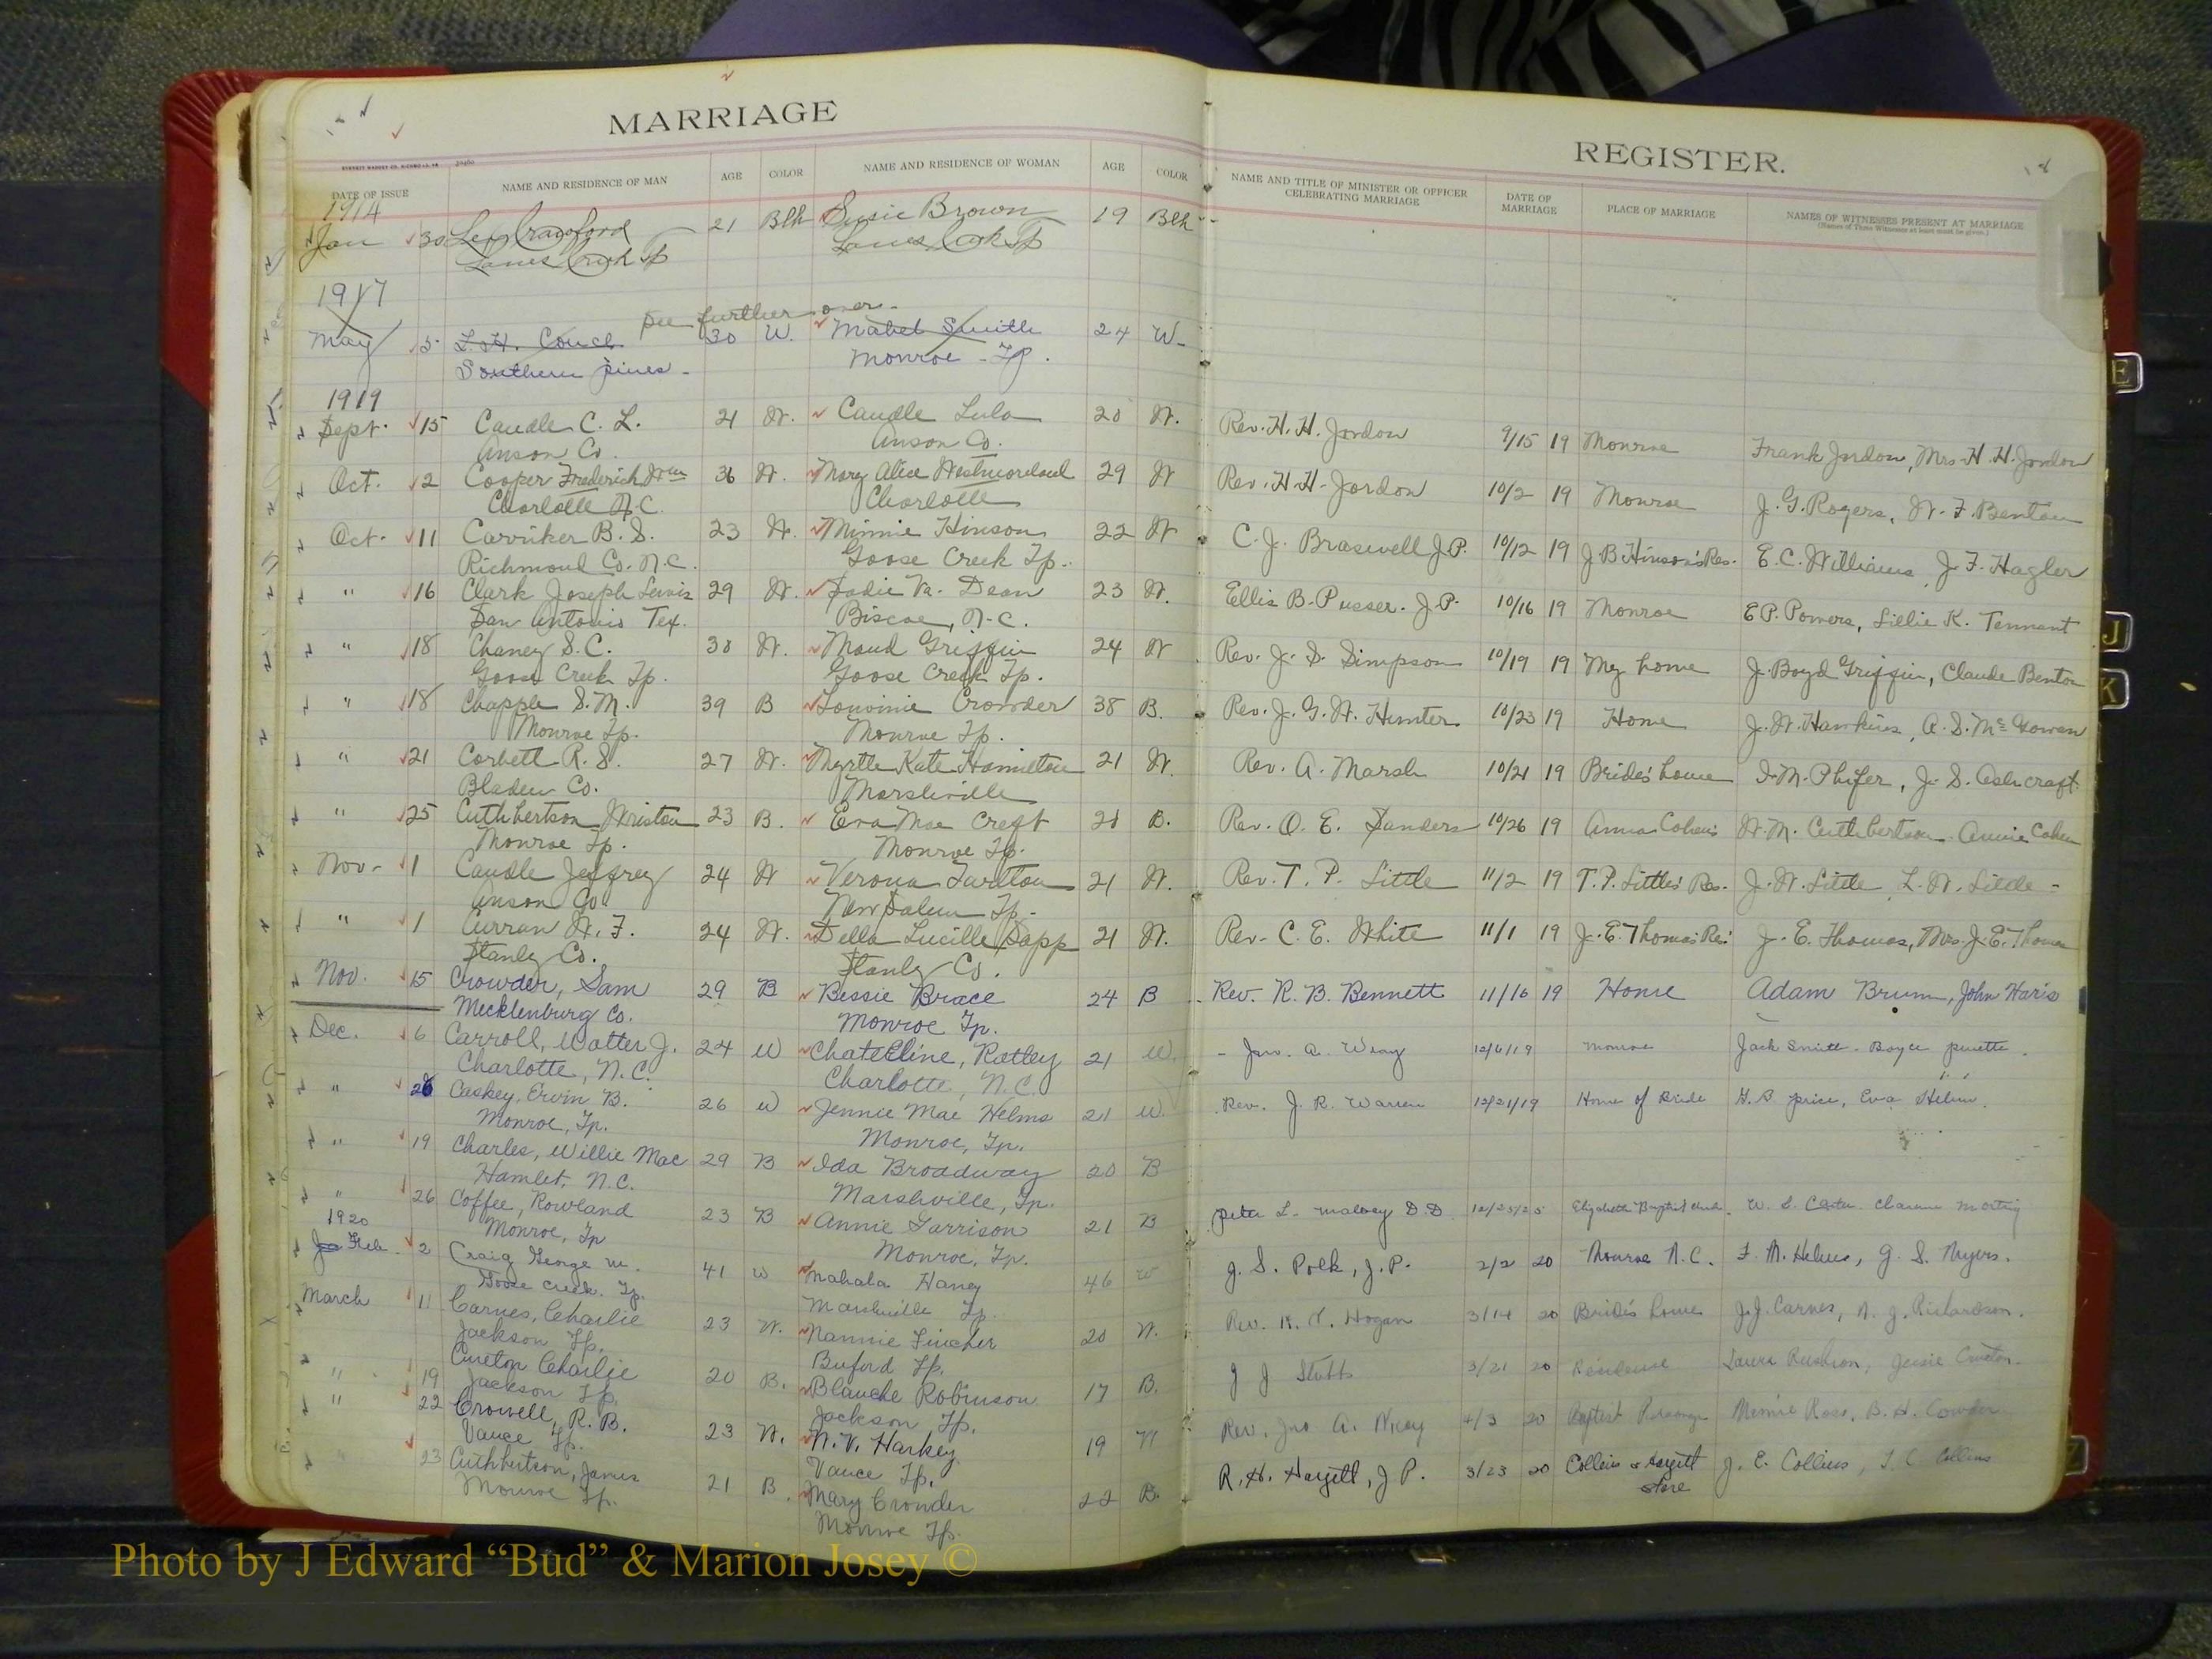 MARRIAGE
DATE OF ISSUE NAME AND RESIDENCE OF MAN AGE COLOR NAME AND RESIDENCE OF WOMAN AGE COLOR
1914
Jan 30 Lee Crawford 21 Blk Susie Brown 19 Blk
Lanes Creek Tp Lanes Creek Tp
1917
See further over-
May 5 L. H. Couch 30 W. Mabel Smith 24 W-
Southern pines - Monroe - Tp.
1919
Sept. 15 Caudle C. L. 21 W. Caudle Lula 20 W.
Anson Co. Anson Co.
Oct. 2 Cooper Frederick Wm 36 W. Mary Alice Westmoreland 29 W
Charlotte N.C. Charlotte
Oct. 11 Carriker B. S. 23 W. Minnie Hinson 22 W
Richmond Co. N.C. Goose Creek Tp.
" 16 Clark Joseph Lewis 29 W. Sadie Va. Dean 23 W.
San Antonio Tex. Biscoe, N.C.
" 18 Chaney S.C. 30 W. Maud Griffin 24 W
Goose Creek Tp. Goose Creek Tp.
" 18 Chapple S.M. 39 B Louvinie Crowder 38 B.
Monroe Tp. Monroe Tp.
" 21 Corbett R. S. 27 W. Myrtle Kate Hamilton 21 W.
Bladen Co. Marshville
" 25 Cuthbertson Wriston 23 B. Eva Mae Creft 21 B.
Monroe Tp. Monroe Tp.
Nov- 1 Caudle Jeffrey 24 W Verona Tarlton 21 W.
Anson Co. New Salem Tp.
" 1 Curran W. F. 24 W. Della Lucille Sapp 21 W.
Stanly Co. Stanly Co.
Nov. 15 Crowder, Sam 29 B Bessie Brace 24 B
Mecklenburg Co. Monroe Tp.
Dec. 6 Carroll, Walter J. 24 W Chatelline, Ratley 21 W.
Charlotte, N.C. Charlotte, N.C.
" 20 Caskey, Ervin B. 26 W Jennie Mae Helms 21 W
Monroe, Tp. Monroe, Tp.
" 19 Charles, Willie Mac 29 B Ida Broadway 20 B
Hamlet, N.C. Marshville, Tp.
" 26 Coffee, Rowland 23 B Annie Garrison 21 B
1920 Monroe, Tp Monroe, Tp.
Feb. 2 Craig George M. 41 W Mahala Haney 46 W
Goose Creek Tp. Marshville Tp.
March 11 Carnes, Charlie 23 W. Nannie Fincher 20 W.
Jackson Tp. Buford Tp.
" 19 Cureton Charlie 20 B. Blanche Robinson 17 B.
Jackson Tp. Jackson Tp.
" 22 Crowell, R. B. 23 W. N.V. Harkey 19 W
Vance Tp. Vance Tp.
" 23 Cuthbertson, James 21 B. Mary Crowder 22 B.
Monroe Tp. Monroe Tp.
REGISTER.
NAME AND TITLE OF MINISTER OR OFFICER CELEBRATING MARRIAGE DATE OF MARRIAGE PLACE OF MARRIAGE NAMES OF WITNESSES PRESENT AT MARRIAGE
(Names of Three Witnesses at least must be given.)
Rev. H. H. Jordon 9/15 19 Monroe Frank Jordon, Mrs. H. H. Jordon
Rev. H. H. Jordon 10/2 19 Monroe J. G. Rogers, W. F. Benton
C. J. Braswell J.P. 10/12 19 J B Hinson's Res. E. C. Williams, J. F. Hagler
Ellis B. Pusser. J.P. 10/16 19 Monroe E P. Powers, Lillie K. Tennant
Rev. J. S. Simpson 10/19 19 My home J. Boyd Griffin, Claude Benton
Rev. J. G. W. Hunter 10/23 19 Home J. W. Hawkins, A. S. McGowen
Rev. A. Marsh 10/21 19 Bride's home I. M. Phifer, J. S. Ashcraft
Rev. O. E. Sanders 10/26 19 Anna Cohen's W. M. Cuthbertson Annie Cohen
Rev. T. P. Little 11/2 19 T. P. Little's Res. J. W. Little, L. W. Little -
Rev- C. E. White 11/1 19 J. E. Thomas Res J. E. Thomas, Mrs. J. E. Thomas
Rev. R. B. Bennett 11/16 19 Home Adam Brumm, John Haris
- Jno. A. Wray 12/6/19 Monroe Jack Smith - Boyce
Rev. J. R. Warren 12/21/19 Home of Bride H. B price, Eva Helms
Peter L. Maloney D.D 12/25/25 Elizabeth Baptist church. W. S.
G. S. Polk, J.P. 2/2 20 Monroe N.C. F. M. Helms, G. S. Myers.
Rev. Hogan 3/14 20 Bride's home J.J. Carnes, Richardson.
J J Stobbs 3/21 20 Residence Laura Rushion, Jessie Cureton.
Rev. Jno A. Wray 4/3 20 Baptist Parsonage Minnie Ross, B. H.
R. H. Hargett, J P. 3/23 20 Collins & Hargett store J. E. Collins, Collins
E
J
K
Photo by J Edward “Bud” & Marion Josey ©